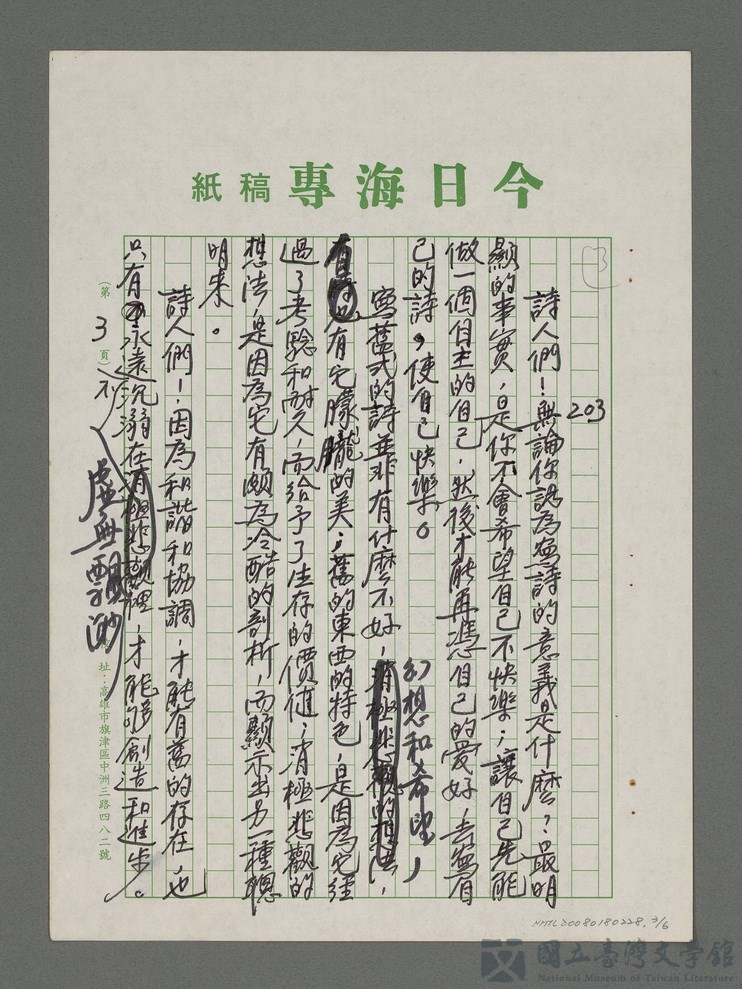 今日海專 稿紙
3
203
詩人們！無論你認為寫詩的意義是什麼？最明
顯的事實，是你不會希望自己不快樂；讓自己先能
做一個自主的自己，然後才能再憑自己的愛好，去寫
自己的詩，使自己快樂。
寫舊式的詩並非有什麼不好，幻想和希望，
只有它朦朧的美；舊的東西的特色，是因為它經
過了考驗和耐久，而給予了生存的價值；消極悲觀的
想法，是因為它有頗為冷酷的剖析，而顯示出另一種聰
明來。
詩人們！因為和諧和協調，才能有舊的存在，也
只有不永遠沉溺在虛無飄渺裡，才能夠創造和進步。
（第 3 頁）
址：高雄市旗津區中洲三路四八二號
NMTL20080180228, 3/6
國立臺灣文學館
National Museum of Taiwan Literature